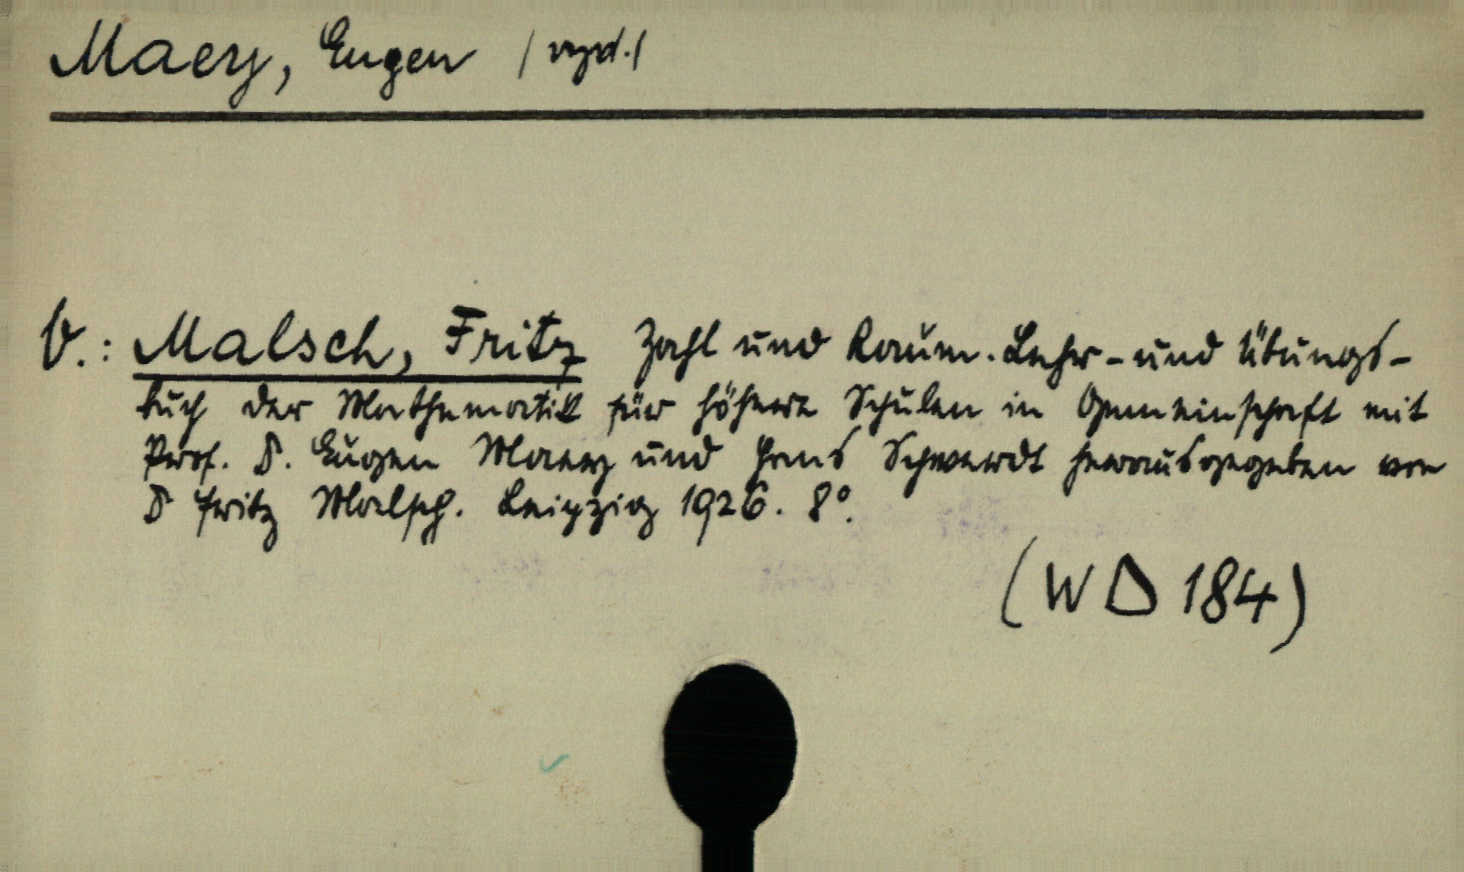 Maey, Eugen /vyd./
V.: Malsch, Fritz Zahl und Raum. Lehr- und Übungs-
buch der Mathematik für höhere Schulen in Gemeinschaft mit
Prof. D. Eugen Maey und Hans Schwerdt herausgegeben von
D Fritz Malsch. Leipzig 1926. 8°.
(WD 184)